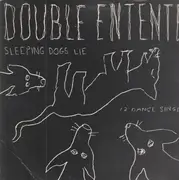 DOUBLE ENTENTE
SLEEPING DOGS LIE
12" DANCE SINGLE